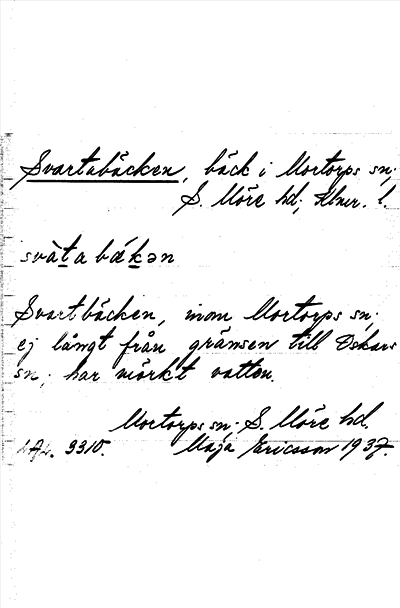 Svartabäcken, bäck i Mortorps sn;
S. Möre hd; Klmr. l.
svàt̲a bák̲ən
Svartbäcken, inom Mortorps sn;
ej långt från gränsen till Oskars
sn; har mörkt vatten.
Mortorps sn; S. Möre hd.
3310. Maja Ericsson 1937.